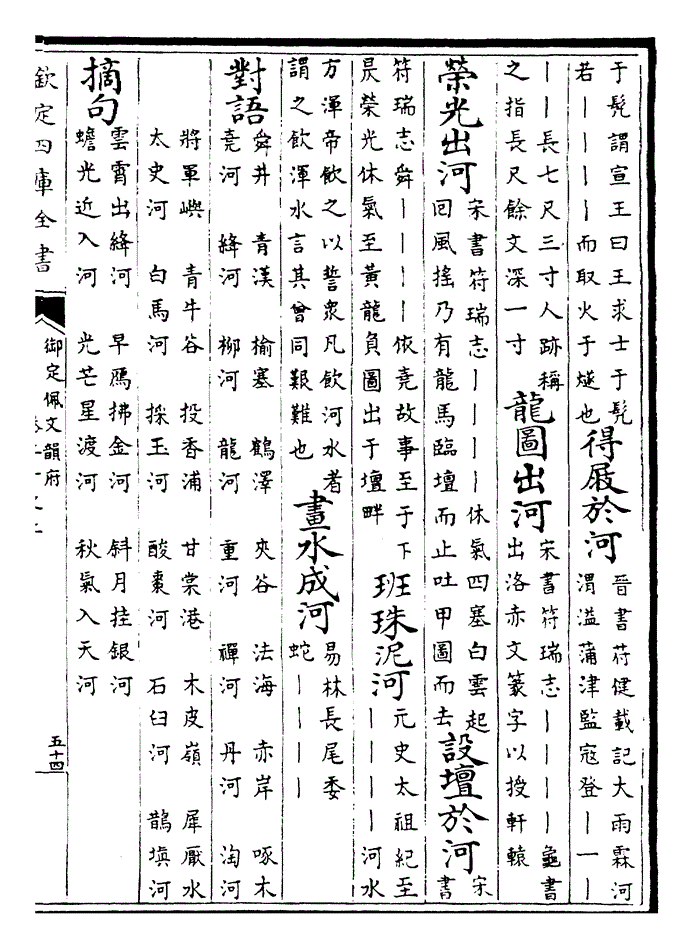 于髡謂宣王曰王求士于髡
若丨丨丨丨而取火于燧也
得屐於河
晉書苻健載記大雨霖河
渭溢蒲津監冦登丨一丨
丨丨長七尺三寸人跡稱
之指長尺餘文深一寸
龍圖出河
宋書符瑞志丨丨丨丨龜書
出洛赤文篆字以授軒轅
榮光出河
宋書符瑞志丨丨丨丨休氣四塞白雲起
回風搖乃有龍馬臨壇而止吐甲圖而去
設壇於河
宋
書
符瑞志舜丨丨丨丨依堯故事至于下
昃榮光休氣至黃龍負圖出于壇畔
班珠泥河
元史太祖紀至
丨丨丨丨河水
方渾帝飲之以誓衆凡飲河水者
謂之飲渾水言其曾同艱難也
畫水成河
易林長尾委
蛇丨丨丨丨
對語
舜井 青漢 榆塞 鶴澤 夾谷 法海 赤岸 啄木
堯河 絳河 柳河 龍河 重河 禪河 丹河 淘河
將軍嶼 青牛谷 投香浦 甘棠港 木皮嶺 犀厭水
太史河 白馬河 採玉河 酸棗河 石臼河 鵲塡河
摘句
雲霄出絳河 早鴈拂金河 斜月挂銀河
蟾光近入河 光芒星渡河 秋氣入天河
欽定四庫全書
御定佩文韻府
五十四